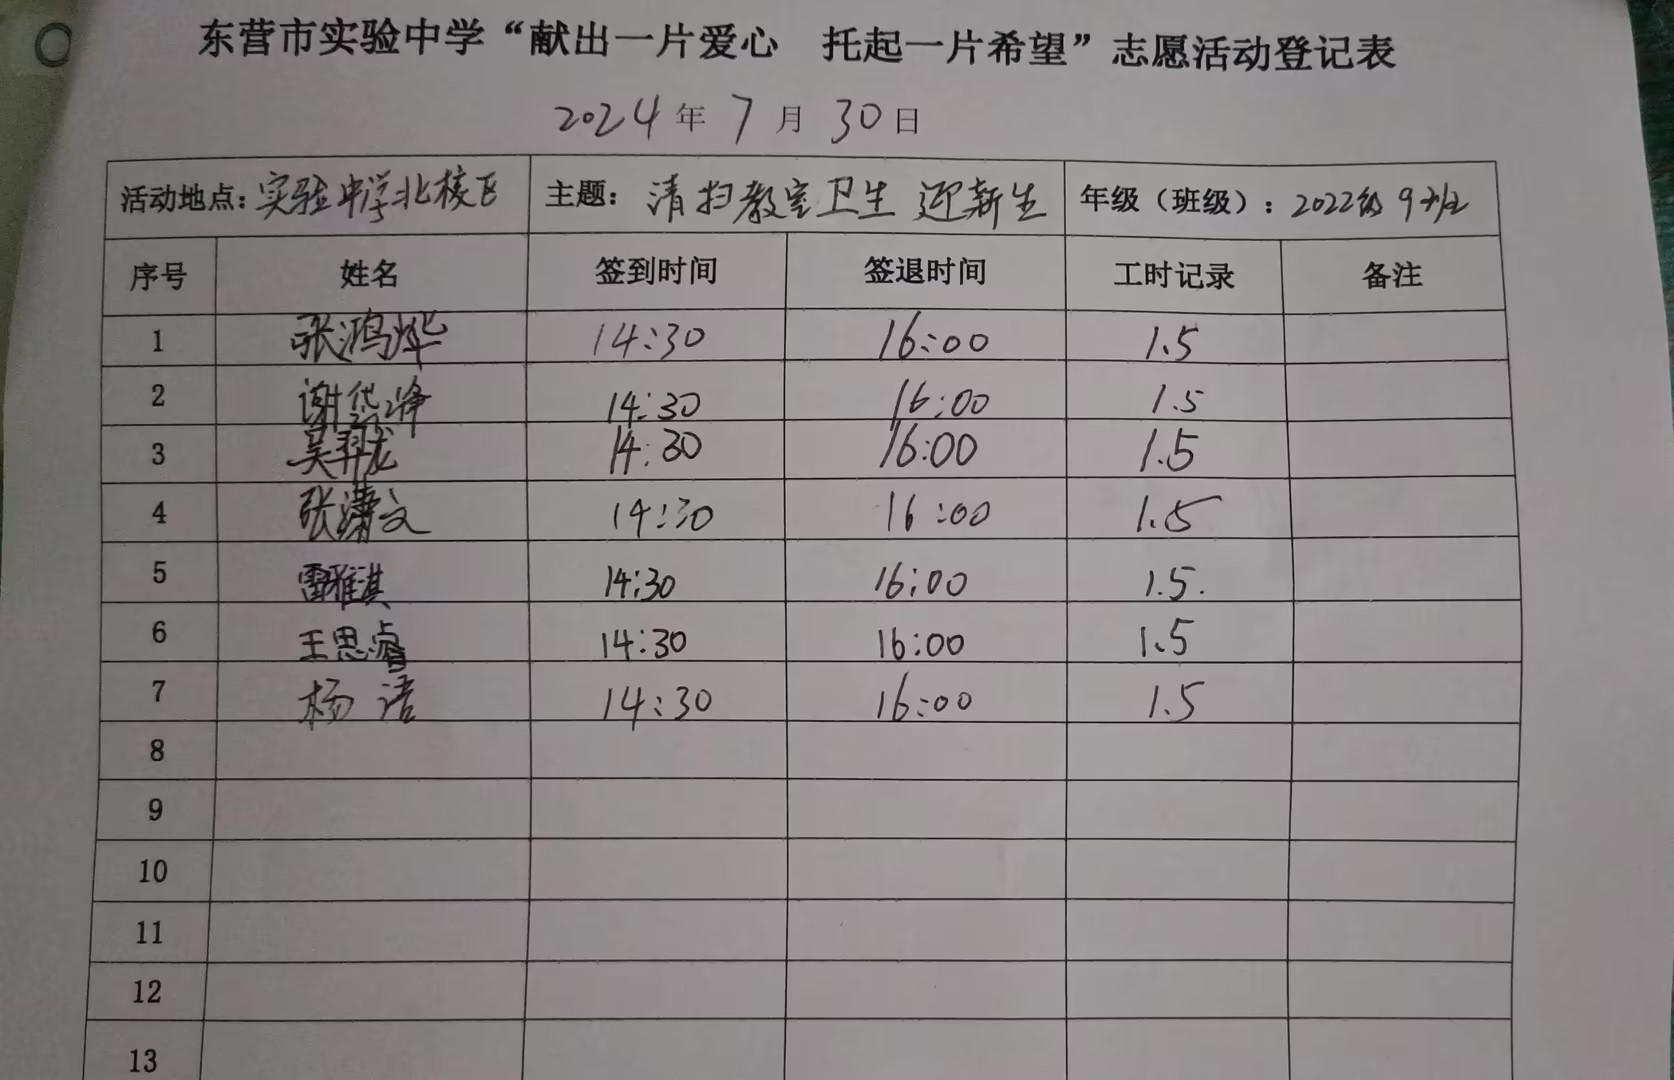 东营市实验中学“献出一片爱心 托起一片希望”志愿活动登记表
2024年7月30日
活动地点：实验中学北校区 主题：清扫教室卫生 迎新生 年级（班级）：2022级9班
序号 姓名 签到时间 签退时间 工时记录 备注
1 张鸿烨 14:30 16:00 1.5
2 谢 14:30 16:00 1.5
3 吴羿龙 14:30 16:00 1.5
4 张潇文 14:30 16:00 1.5
5 雷雅淇 14:30 16:00 1.5.
6 王思睿 14:30 16:00 1.5
7 杨洁 14:30 16:00 1.5
8
9
10
11
12
13